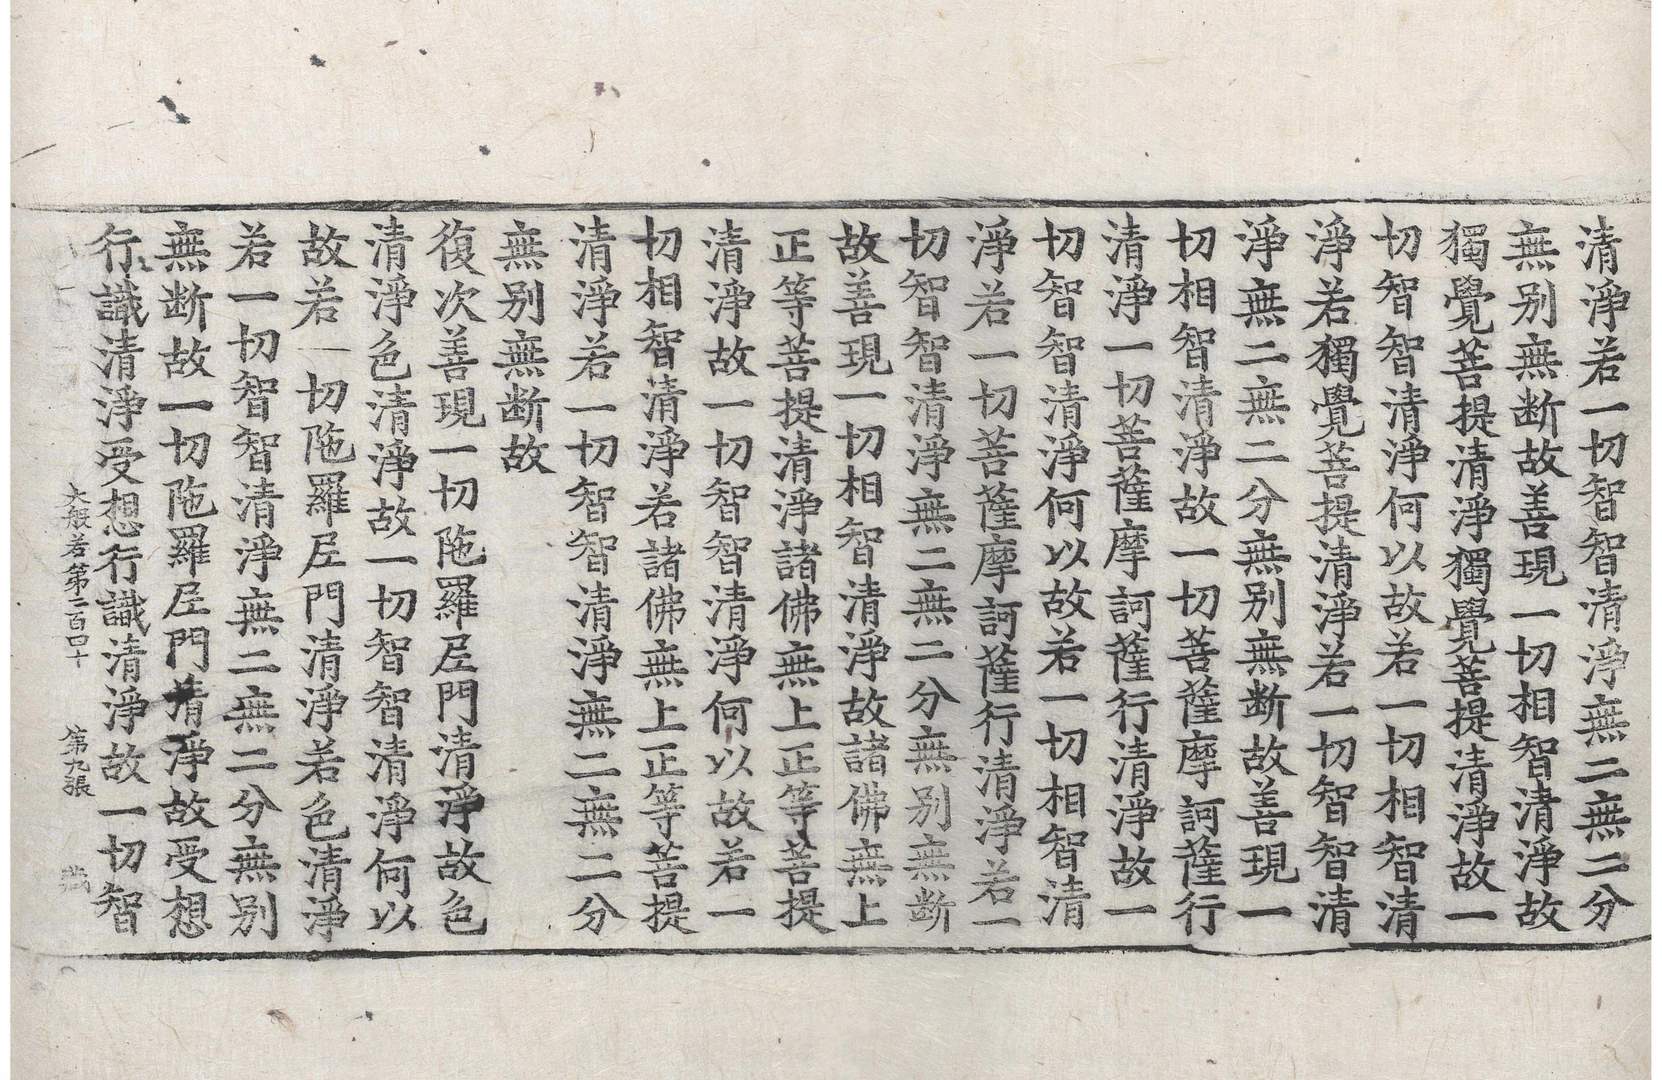 清淨若一切智智清淨無二無二分
無別無断故善現一切相智清淨故
獨覺菩提清淨獨覺菩提清淨故一
切智智清淨何以故若一切相智清
淨若獨覺菩提清淨若一切智智清
淨無二無二分無別無断故善現一
切相智清淨故一切菩薩摩訶薩行
清淨一切菩薩摩訶薩行清淨故一
切智智清淨何以故若一切相智清
淨若一切菩薩摩訶薩行清淨若一
切智智清淨無二無二分無別無断
故善現一切相智清淨故諸佛無上
正等菩提清淨諸佛無上正等菩提
清淨故一切智智清淨何以故若一
切相智清淨若諸佛無上正等菩提
清淨若一切智智清淨無二無二分
無別無断故
復次善現一切陁羅尼門清淨故色
清淨色清淨故一切智智清淨何以
故若一切陁羅尼門清淨若色清淨
若一切智智清淨無二無二分無別
無断故一切陁羅尼門清淨故受想
行識清淨受想行識清淨故一切智
大般若第二百四十 第九張 藏